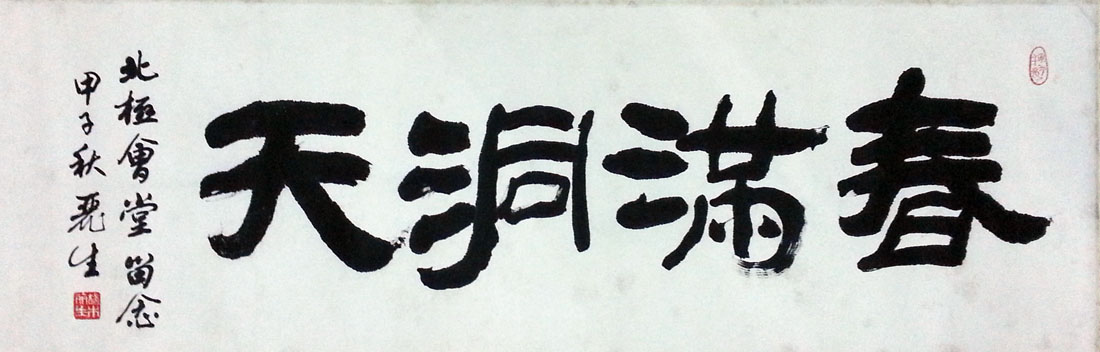 春滿洞天
北極會堂留念
甲子秋麗生